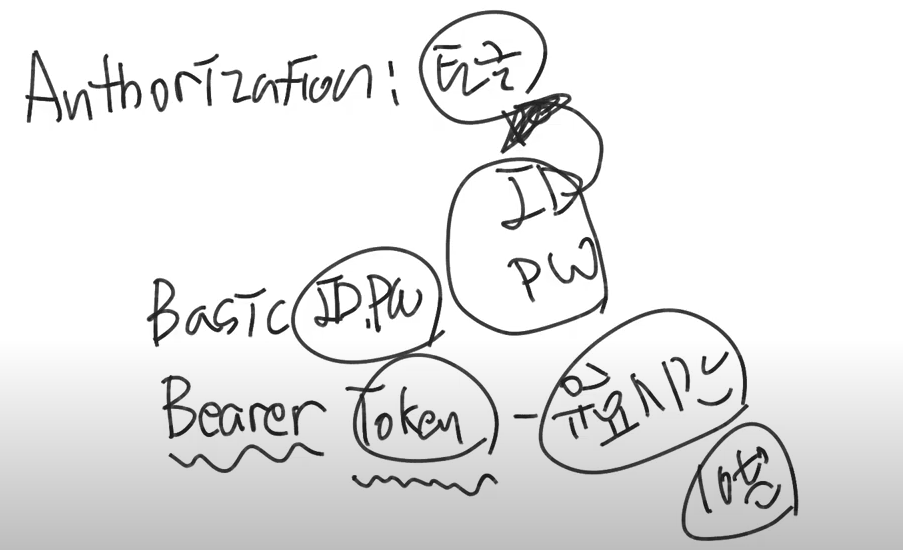 Authorization: 토큰
ID
PW
Basic ID.PW
Bearer Token - 유효시간
10분